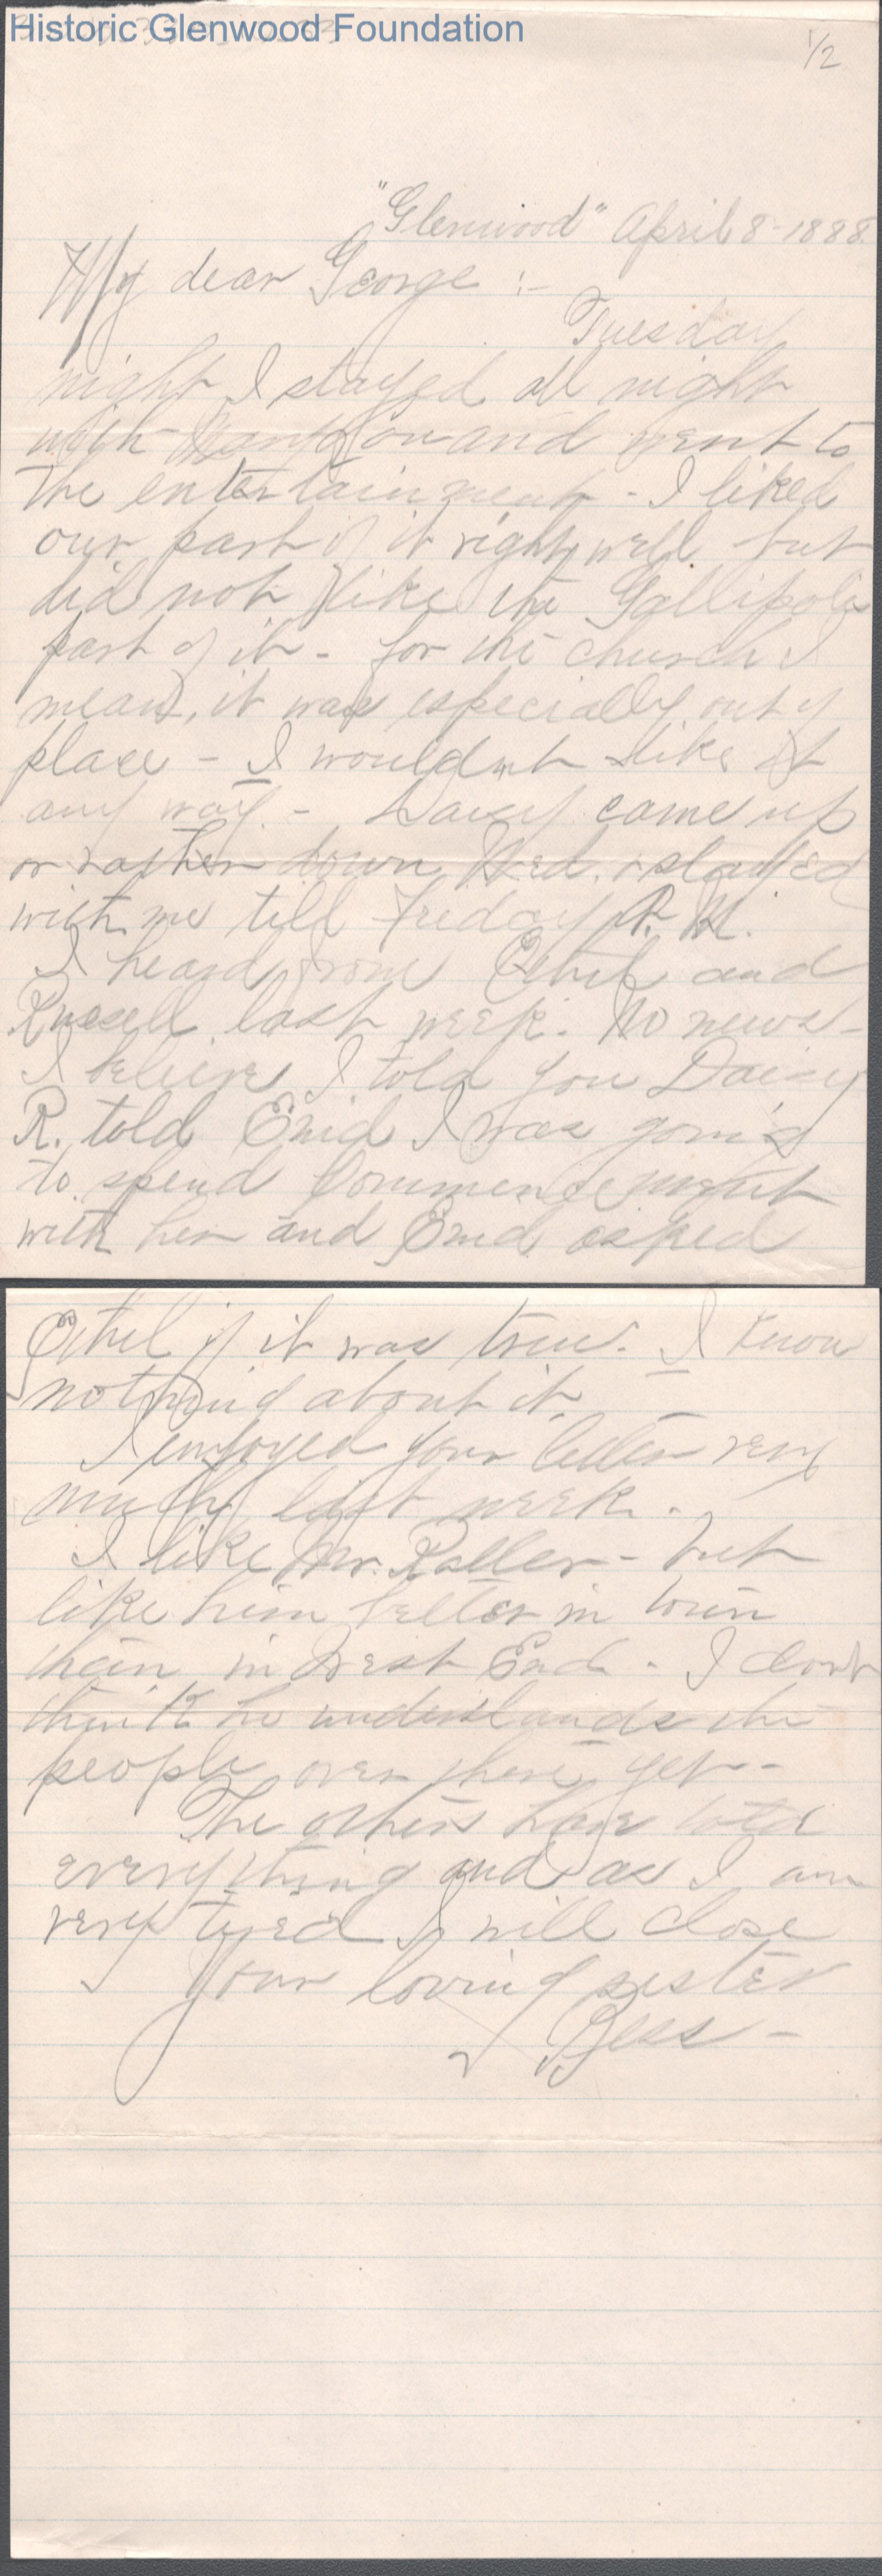 Historic Glenwood Foundation
1/2
"Glenwood" April 8-1888.
My dear George :-
Tuesday
night I stayed all night
with and went to
the entertainment - I liked
our part of it right well but
did not like the Gallipolis
part of it - for the church I
mean, it was especially out of
place - I wouldnt like it
any way. - came up
or rather down Wed. & stayed
with me till Friday P. M.
I heard from Ethel and
Russell last week. No news -
I believe I told you Daisy
R. told Enid I was going
to spend Commence night
with her and Enid asked
Ethel if it was true. I know
nothing about it. -
I enjoyed your letter very
much last week. -
I like Mr. - but
like him better in town
than in West End - I dont
think he understands the
people over there yet -
The others have told
everything and as I am
very tyred I will close
Your loving sister
Bess -